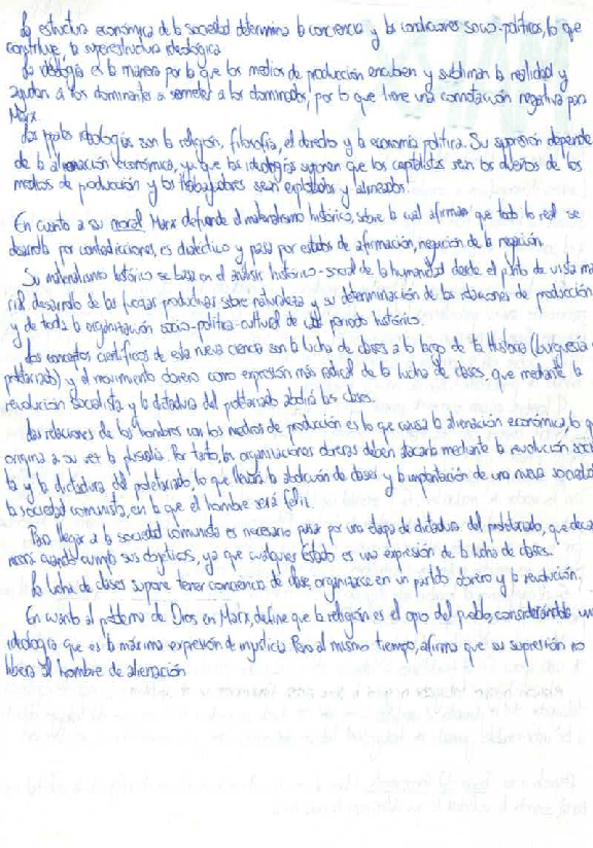 La estructura económica de la sociedad determina la conciencia y las condiciones socio-políticas, lo que
constituye la superestructura ideológica.
La ideología es la manera por la que los medios de producción encubren y subliman la realidad y
ayudan a los dominantes a someter a los dominados, por lo que tiene una connotación negativa para
Marx.
Las ppales ideologías son la religión, filosofía, el derecho y la economía política. Su supresión depende
de la alienación económica, ya que las ideologías suponen que los capitalistas sean los dueños de los
medios de producción y los trabajadores sean explotados y alienados.
En cuanto a su moral, Marx defiende el materialismo histórico, sobre la cual afirma que todo lo real se
desarrolla por contradicciones, es dialéctico y pasa por estados de afirmación, negación de la negación.
Su materialismo histórico se basa en el análisis histórico-social de la humanidad desde el punto de vista ma
del desarrollo de las fuerzas productivas sobre naturaleza y su determinación de las relaciones de producción
y de toda la organización socio-política-cultural de cada periodo histórico.
Los conceptos científicos de esta nueva ciencia son la lucha de clases a lo largo de la Historia (burguesía
proletariado) y el movimiento obrero como expresión más radical de la lucha de clases, que mediante la
revolución socialista y la dictadura del proletariado abolirá las clases.
Las relaciones de los hombres con los medios de producción es lo que causa la alienación económica, lo q
origina a su vez la plusvalía. Por tanto, las organizaciones obreras deben atacarla mediante la revolución social
ta y la dictadura del proletariado, lo que llevará la abolición de clases y la implantación de una nueva sociedad
la sociedad comunista, en la que el hombre será feliz.
Para llegar a la sociedad comunista es necesario pasar por una etapa de dictadura del proletariado, que desa
recerá cuando cumpla sus objetivos, ya que cualquier Estado es una expresión de la lucha de clases.
La lucha de clases supone tener conciencia de clase, organizarse en un partido obrero y la revolución.
En cuanto al problema de Dios en Marx, define que la religión es el opio del pueblo, considerándola un
ideología que es la máxima expresión de mystica. Pero al mismo tiempo, afirma que su supresión no
libera al hombre de alienación.